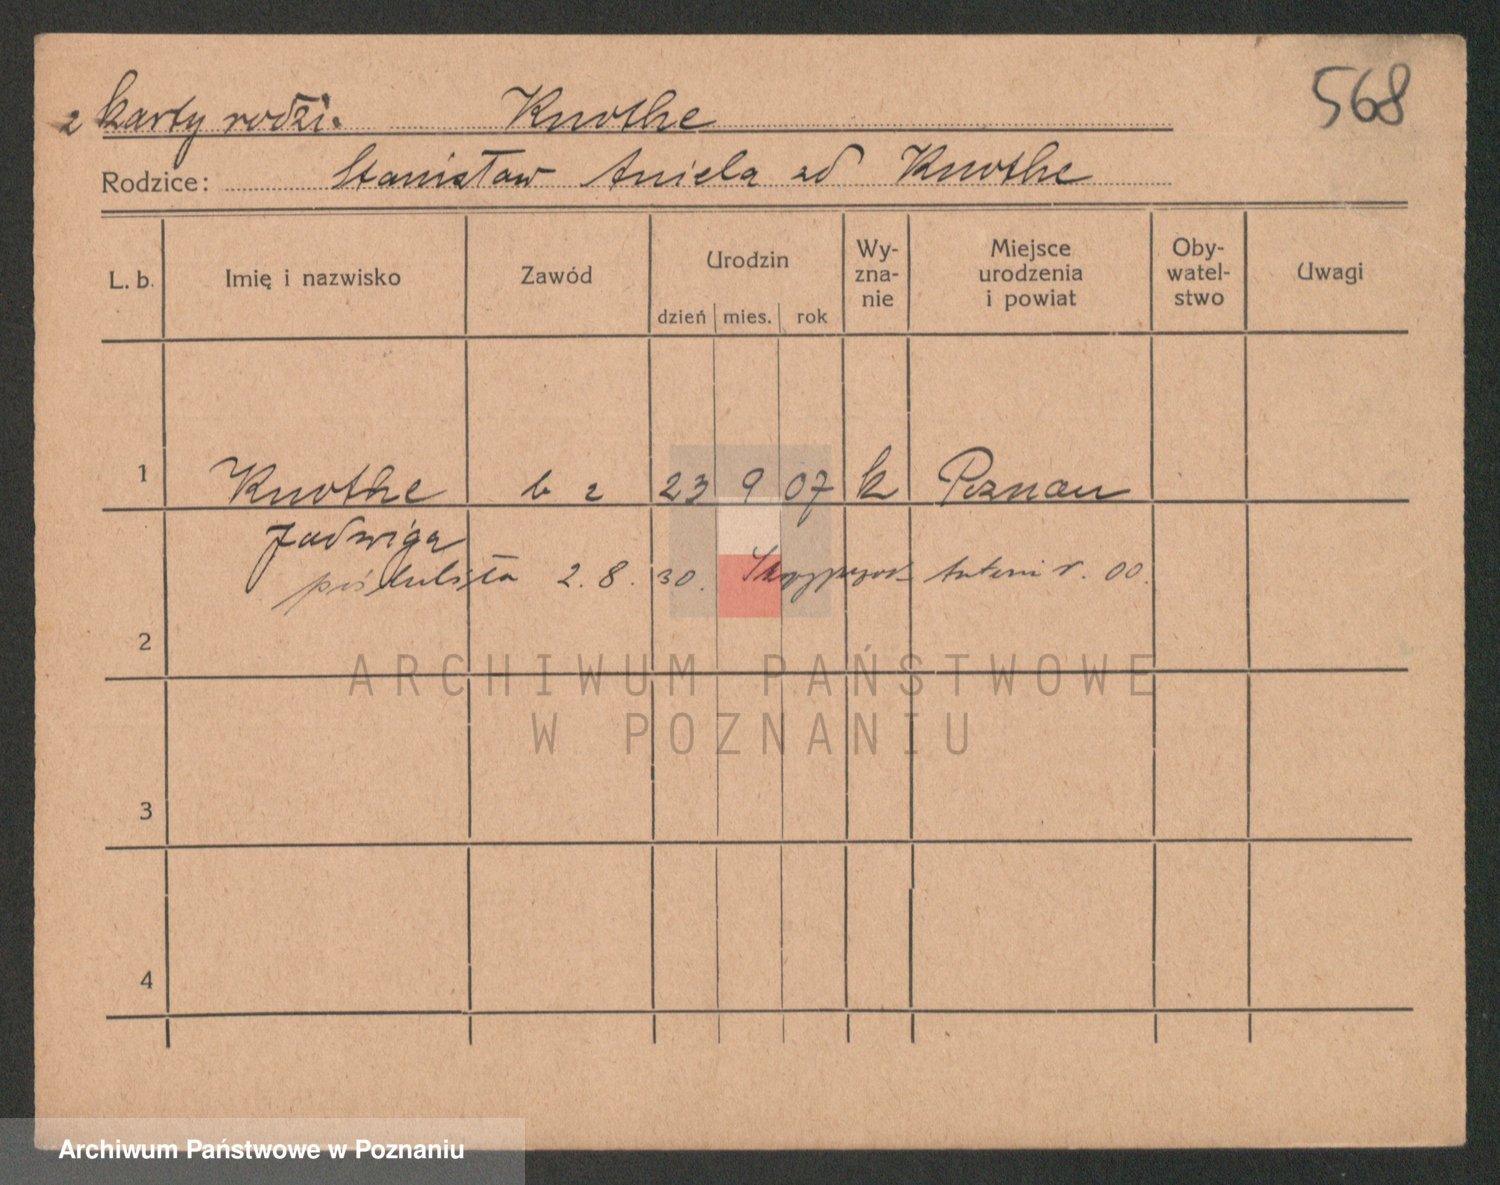 568
z karty rodzi. Knothe
Rodzice: Stanisław Aniela zd Knothe
L. b. Imię i nazwisko Zawód Urodzin dzień mies. rok Wy-zna-nie Miejsce urodzenia i powiat Oby-watel-stwo Uwagi
1 Knothe b z 23 9 07 k Poznan
Jadwiga
poślubiła 2. 8. 30. Skrzypczak Antoni r. 00.
2
3
4
ARCHIWUM PAŃSTWOWE
W POZNANIU
Archiwum Państwowe w Poznaniu